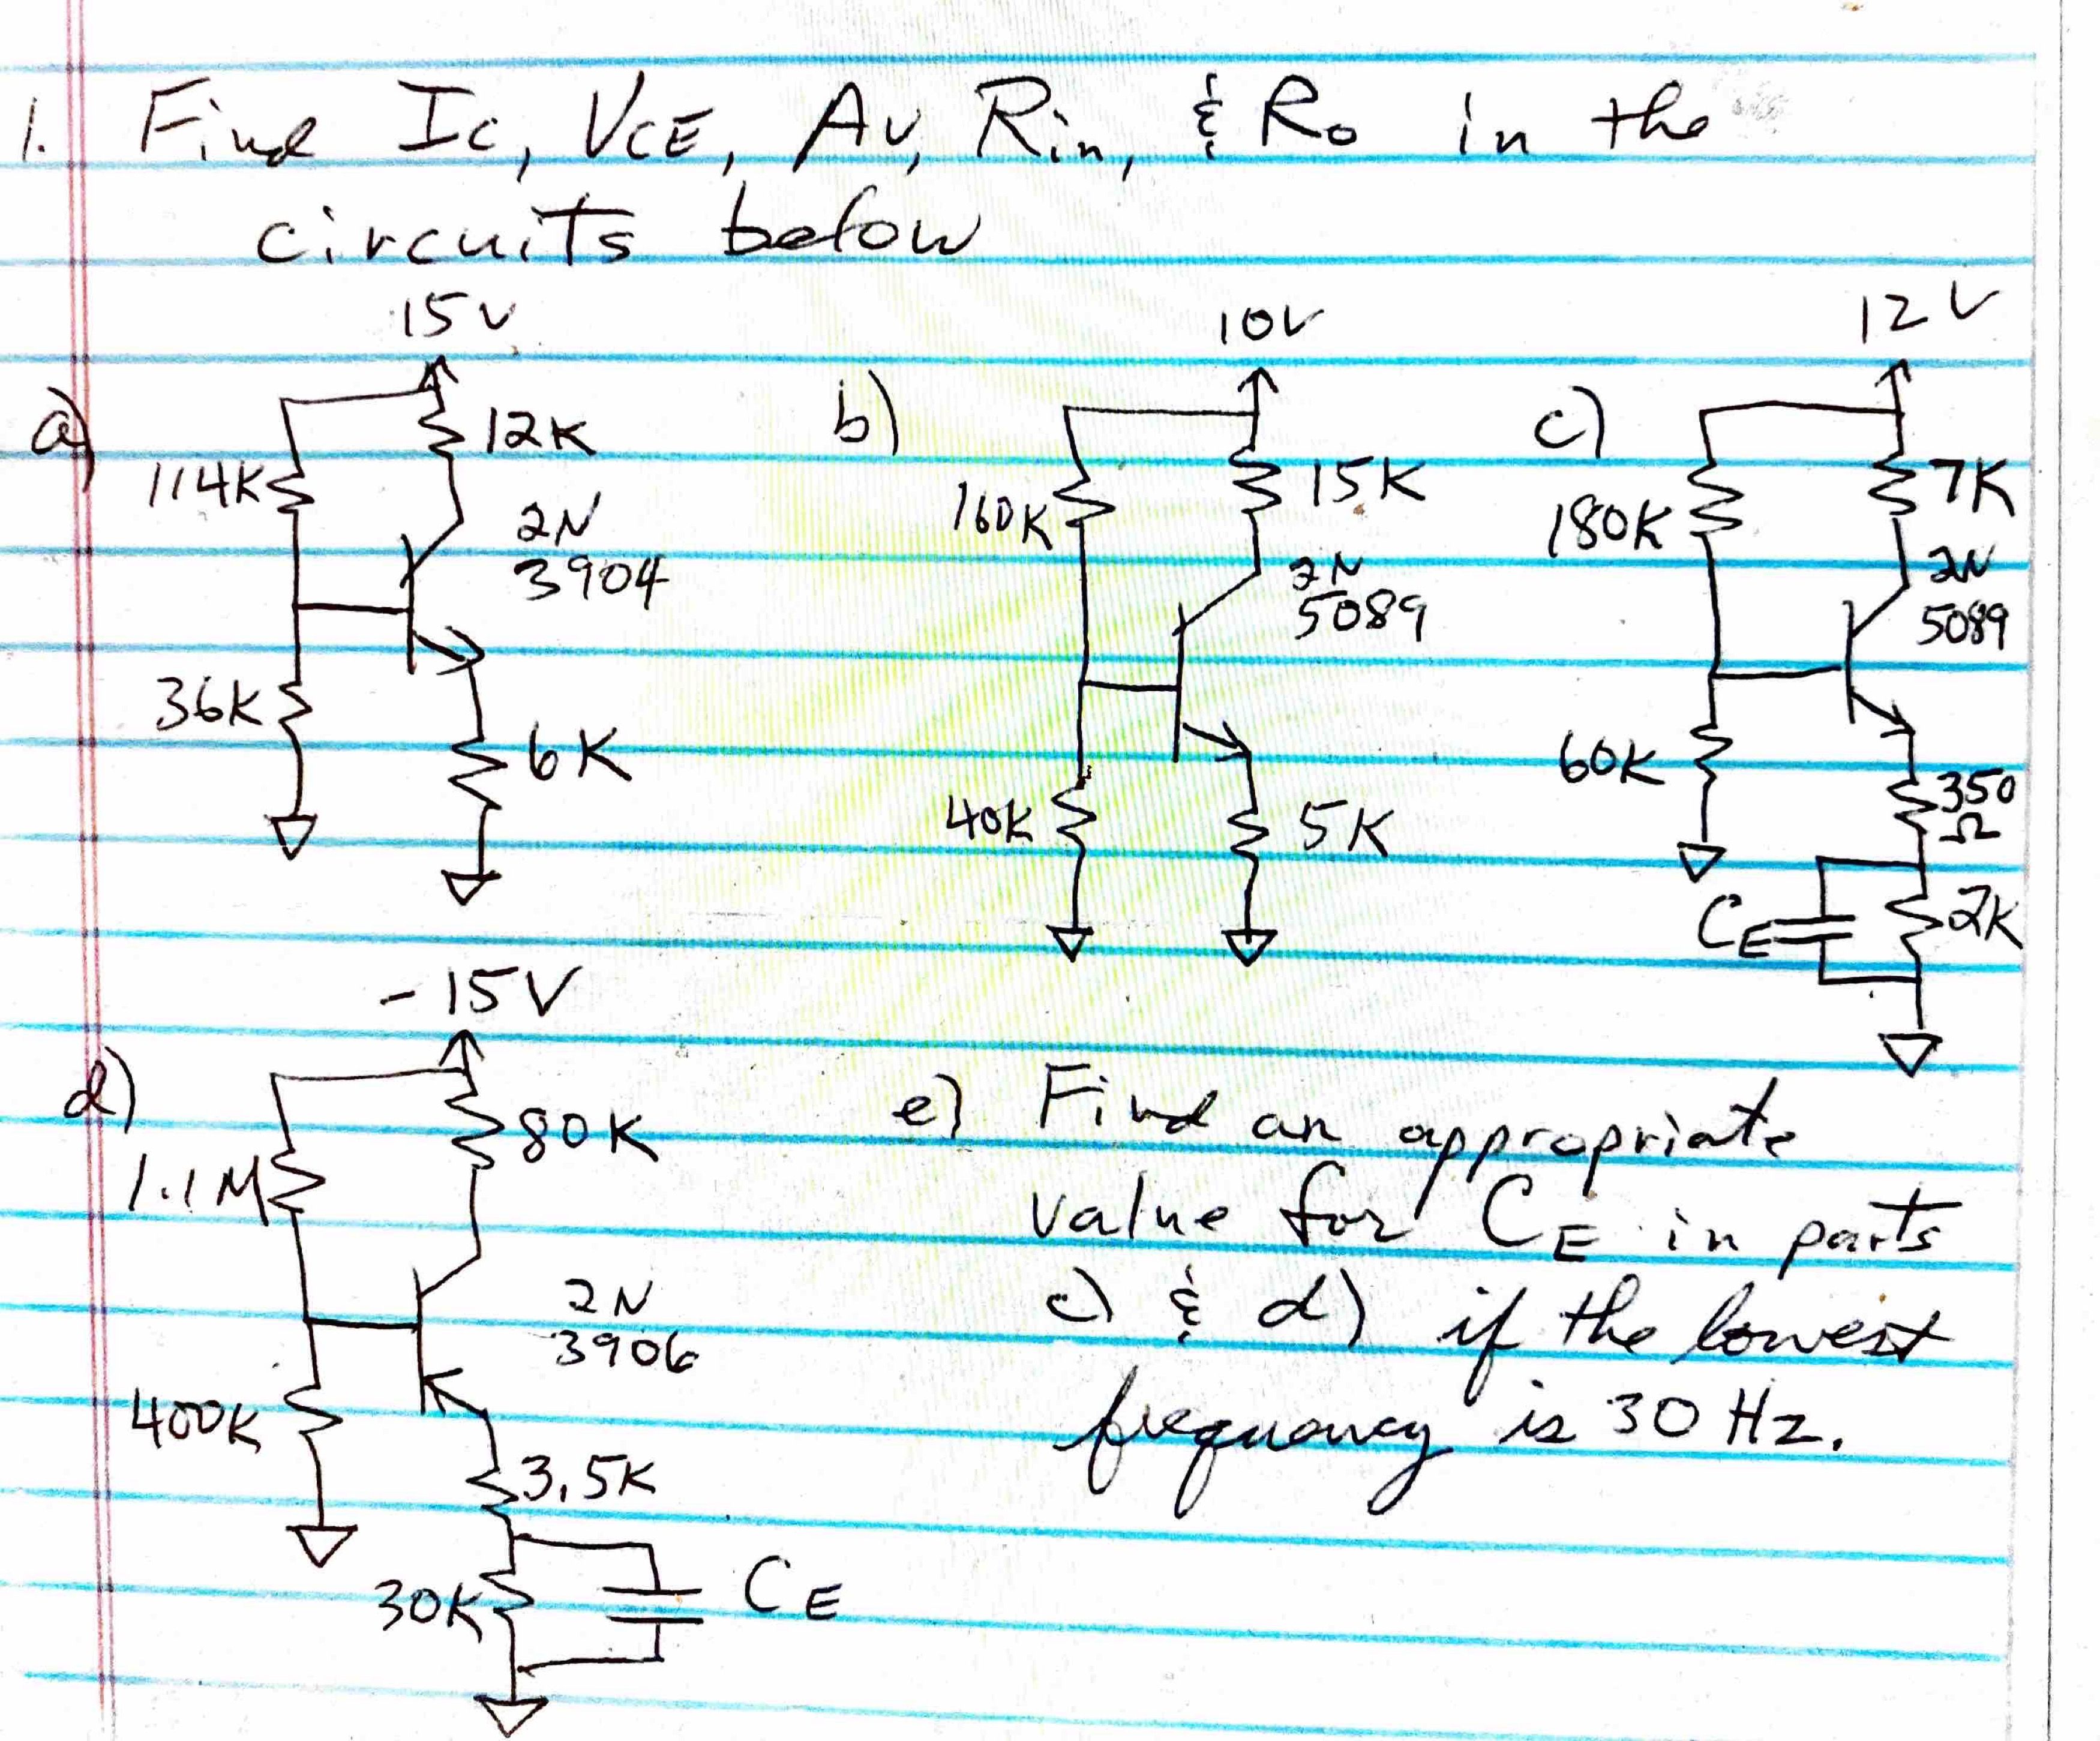 1. Find Ic, VCE, Av, Rin, & Ro in the
circuits below
15V
a)
12K
114K
2N
3904
36K
6K
10V
b)
15K
160K
2N
5089
40K
5K
12V
c)
7K
180K
2N
5089
60K
350
Ω
CE
2K
-15V
d)
80K
1.1M
2N
3906
400K
3.5K
30K
CE
e) Find an appropriate
value for CE in parts
c) & d) if the lowest
frequency is 30 Hz.